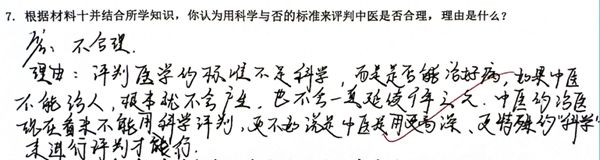 7. 根据材料十并结合所学知识，你认为用科学与否的标准来评判中医是否合理，理由是什么？
答：不合理.
理由：评判医学的标准不是科学，而是是否能治好病，如果中医
不能治人，根本就不会产生，也不会一直延使千年之元. 中医的治医
现在看来不能用科学评判，更不必说是中医是用更高深、更特殊的“科学”
来进行评判才能行.